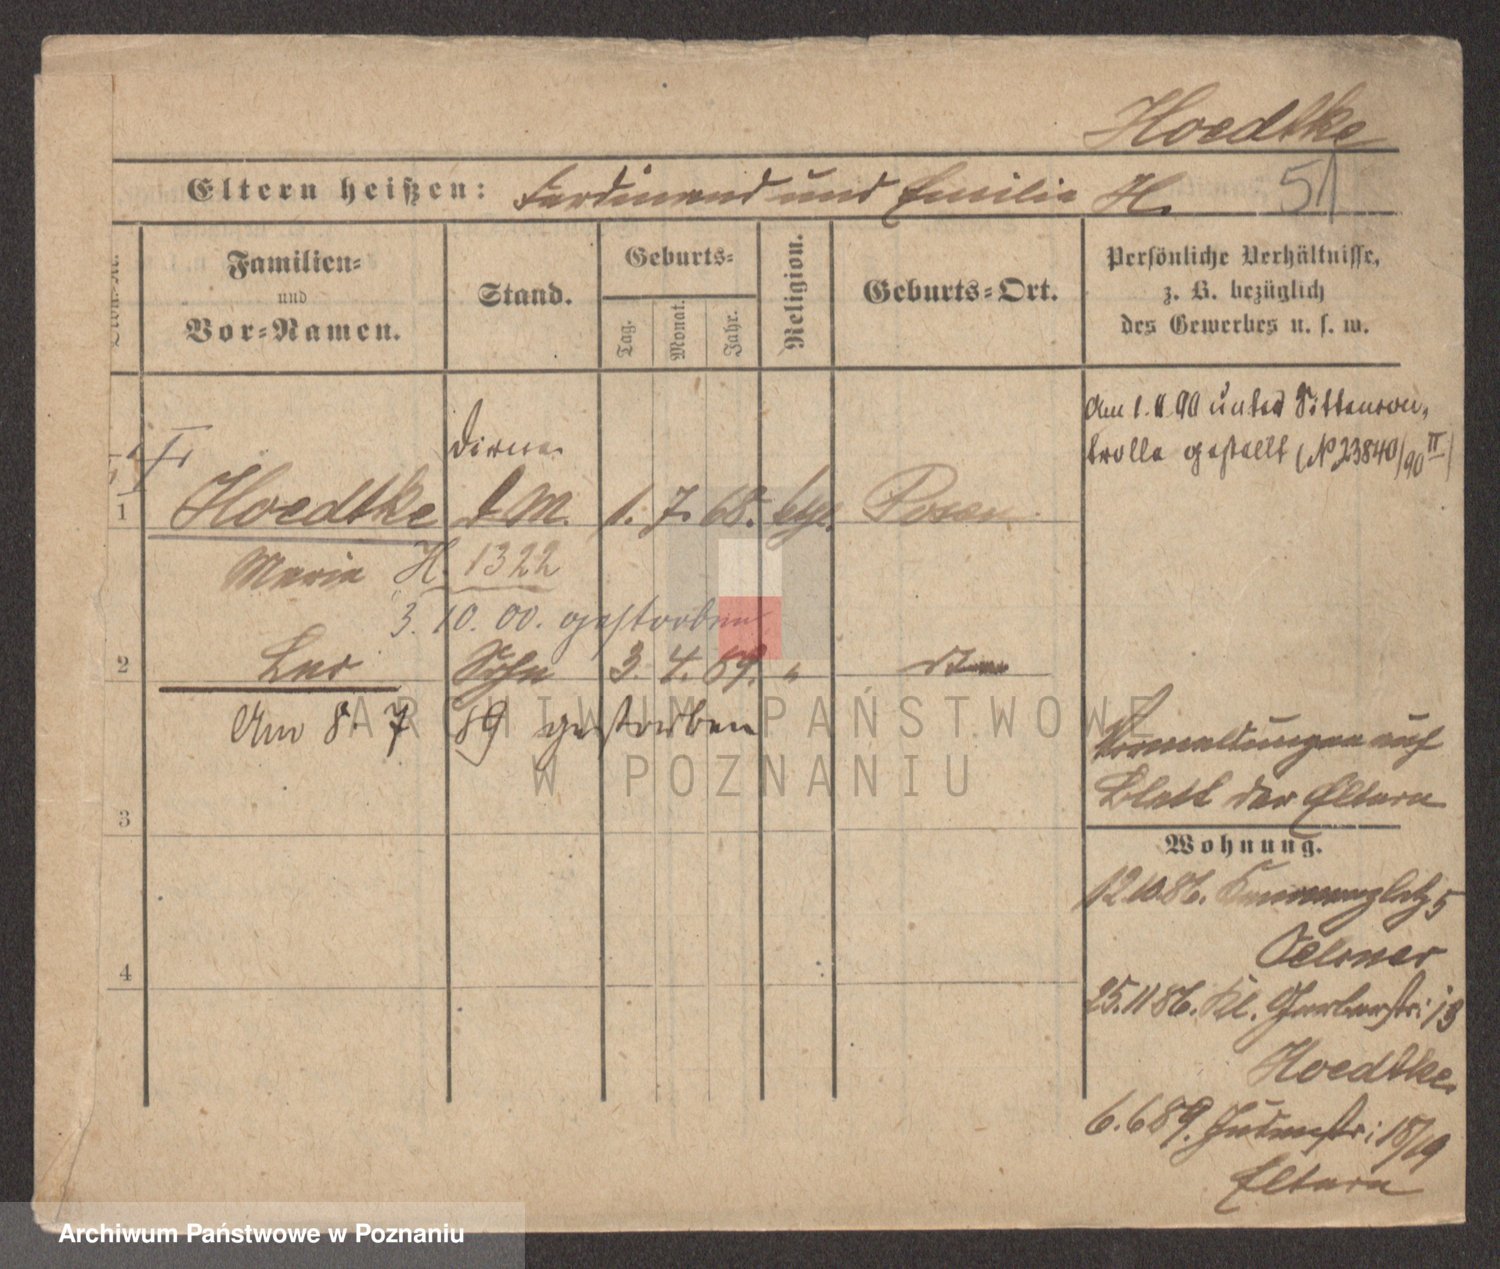 Hoedtke
Eltern heißen: Ferdinand und Emilie H. 51
Familien=
und
Vor=Namen.
Stand.
Geburts=
Tag.
Monat.
Jahr.
Religion.
Geburts=Ort.
Persönliche Verhältnisse,
z. B. bezüglich
des Gewerbes u. s. w.
Am 1. 90 unter Sittencon,
trolle gestellt (No 23840/90 II)
Dirne
1 Hoedtke d. M. 1. 7. 68. Posen
Maria H. 1322
3. 10. 00. gestorben
2 Sohn 3. 4. 89. "
Am 8. 7 89 gestorben
3
4
auf
Blatt der Eltern
Wohnung.
12.10.86. 5
25.11 86. Kl. Gerberstr: 13
Hoedtke
6.6 89. Judenstr: 18/19
Eltern
ARCHIWUM PAŃSTWOWE
W POZNANIU
Archiwum Państwowe w Poznaniu